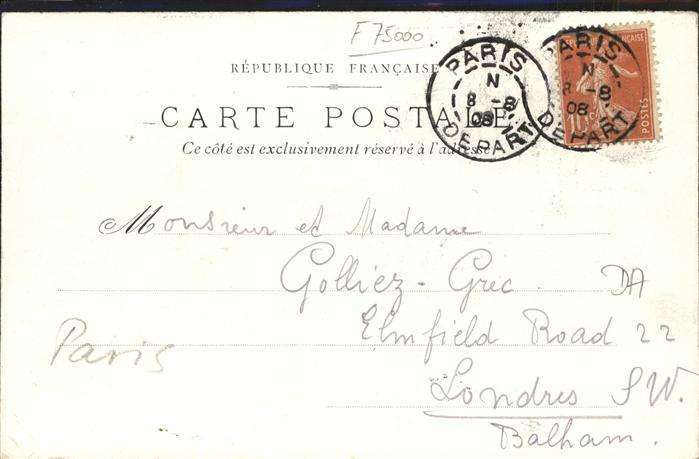 F 75000
RÉPUBLIQUE FRANÇAISE
CARTE POSTALE
Ce côté est exclusivement réservé à l'adresse
PARIS
N
8 -8
08
DEPART
PARIS
N
8 -8
08
DEPART
FRANÇAISE
POSTES
10c
Monsieur et Madame
Golliez-Grec
DA
Elmfield Road 22
Paris
Londres SW.
Balham.